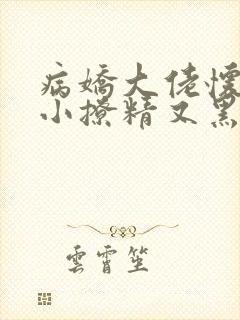 病嬌大佬懷
小撩精又黑
雲霄笙